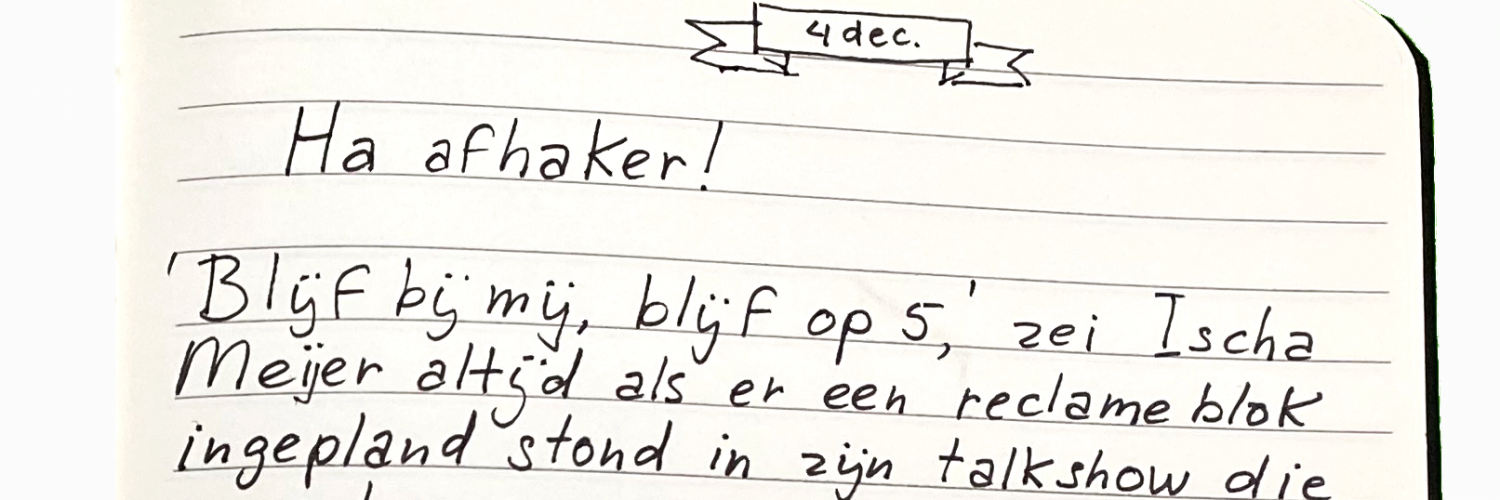 4 dec.
Ha afhaker!
'Blijf bij mij, blijf op 5,' zei Ischa
Meijer altijd als er een reclameblok
ingepland stond in zijn talkshow die